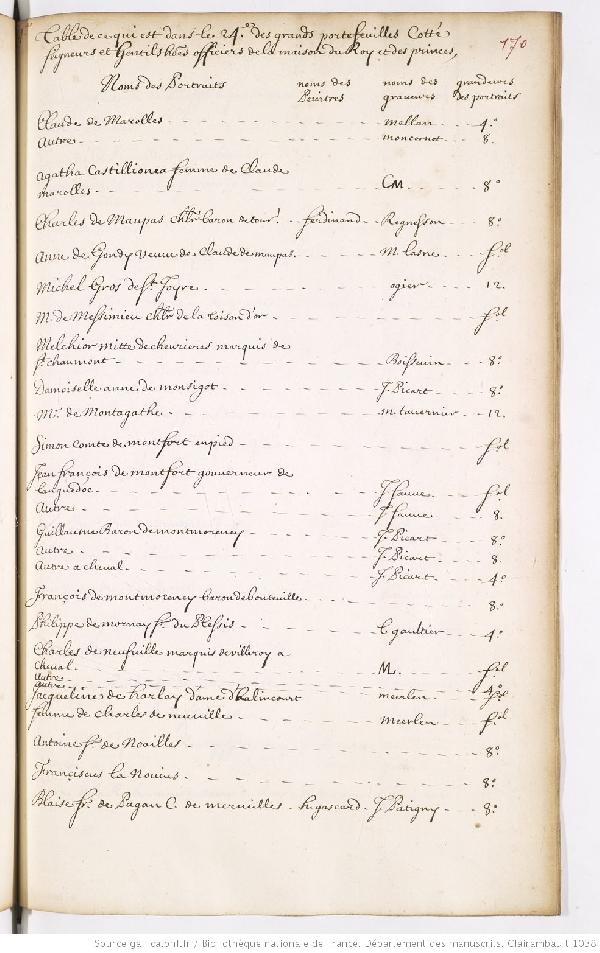 Table de ce qui est dans le 24.e des grands portefeuilles Cotté
seigneurs et Gentilshoes officiers de la maison du Roy et des princes, 170
Noms des Portraits noms des Peintres noms des graveurs grandeurs des portraits
Claude de Marolles mellan 4.o
Autre moncornet 8.
Agatha Castillionea femme de Claude
marolles CM 8o
Charles de Maupas chlr baron du tour ferdinand Regnesson 8o
Anne de Gondy veuve de Claude de maupas M lasne fol
Michel Gros de St. Joyre ogier 12.
Mr. de Messimieu chlr de la toison d'or fol
Melchior mitte de chevrieres marquis de
St chaumont Boissevin 8o
Damoiselle anne de monsigot J. Picart 8o
Mr. de Montagathe m. tavernier 12.
Simon comte de montfort en pied fol
Jean françois de montfort gouverneur de
Languedoc J fauve fol
Autre J fauve 8.
Guillaume Baron de montmorency J. Picart 8o
Autre J. Picart 8
Autre a cheval J. Picart 4o
François de montmorency baron de bouteville 8o
Philippe de mornay sr. du Plessis L gaultier 4o
Charles de neufuille marquis de villeroy a
cheval M. fol
Autre
Autre 4o
Jacqueline de harlay dame d'halincourt meerlen fol
femme de charles de neuville meerlen fol
Antoine sr. de Noailles 8o
Franciscus La Nouius 8o
Blaise fr. de Pagan C. de merveilles J Patigny 8o
Source gallica.bnf.fr / Bibliothèque nationale de France. Département des manuscrits. Clairambault 1038